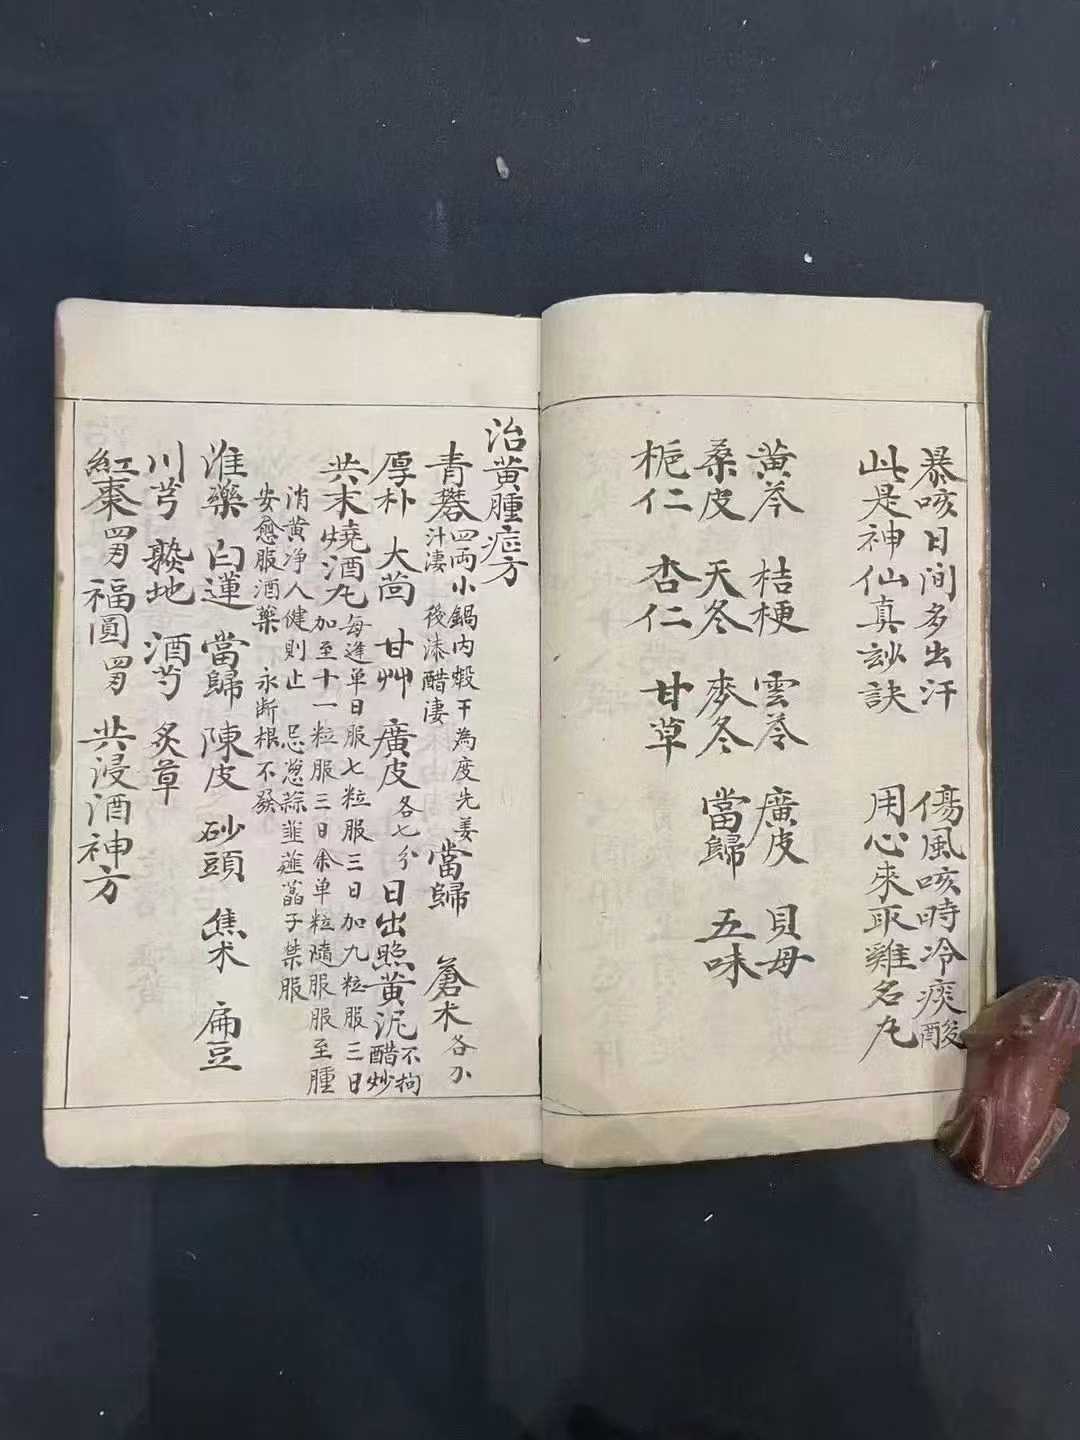 暴咳日间多出汗 傷風咳時冷痰酸
此是神仙真妙訣 用心來取雞名丸
黄芩 桔梗 雲苓 廣皮 貝母
桑皮 天冬 麥冬 當歸 五味
栀仁 杏仁 甘草
治黄腫症方
青礬四両小鍋内煅干為度先姜汁淬後漆醋淬 當歸 蒼术各刄
厚朴 大茴 甘艸 廣皮各七分 日出照黄泥不拘醋炒
共末燒酒丸每逢单日服七粒服三日加九粒服三日
加至十一粒服三日余单粒隨服服至腫
消黄净人健則止 忌葱蒜韮薤藠子禁服
安愈服酒藥 永断根不發
淮藥 白蓮 當歸 陳皮 砂頭 焦术 扁豆
川芎 熟地 酒芍 炙草
紅棗四两 福圓四两 共浸酒神方